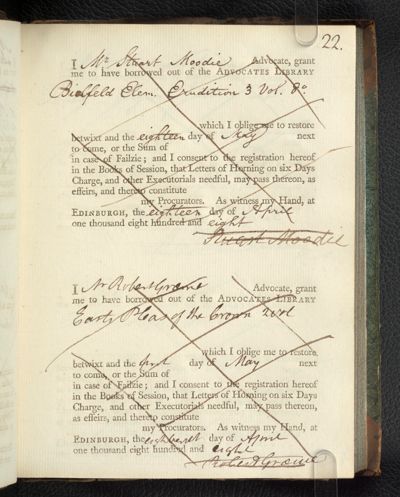 22.
I Mr Stuart Moodie Advocate, grant
me to have borrowed out of the ADVOCATES LIBRARY
Bielfeld Elem. Erudition 3 Vol. 8o.
which I oblige me to restore
betwixt and the eighteen day of May next
to come, or the Sum of
in case of Failzie; and I consent to the registration hereof
in the Books of Session, that Letters of Horning on six Days
Charge, and other Executorials needful, may pass thereon, as
effeirs, and thereto constitute
my Procurators. As witness my Hand, at
EDINBURGH, the eighteen day of April
one thousand eight hundred and eight
Stuart Moodie
I Mr Robert Græme Advocate, grant
me to have borrowed out of the ADVOCATES LIBRARY
East's Pleas of the Crown 2 vol
which I oblige me to restore,
betwixt and the first day of May next
to come, or the Sum of
in case of Failzie; and I consent to the registration hereof
in the Books of Session, that Letters of Horning on six Days
Charge, and other Executorials needful, may pass thereon,
as effeirs, and thereto constitute
my Procurators. As witness my Hand, at
EDINBURGH, the day of April
one thousand eight hundred and eight
Robert Græme